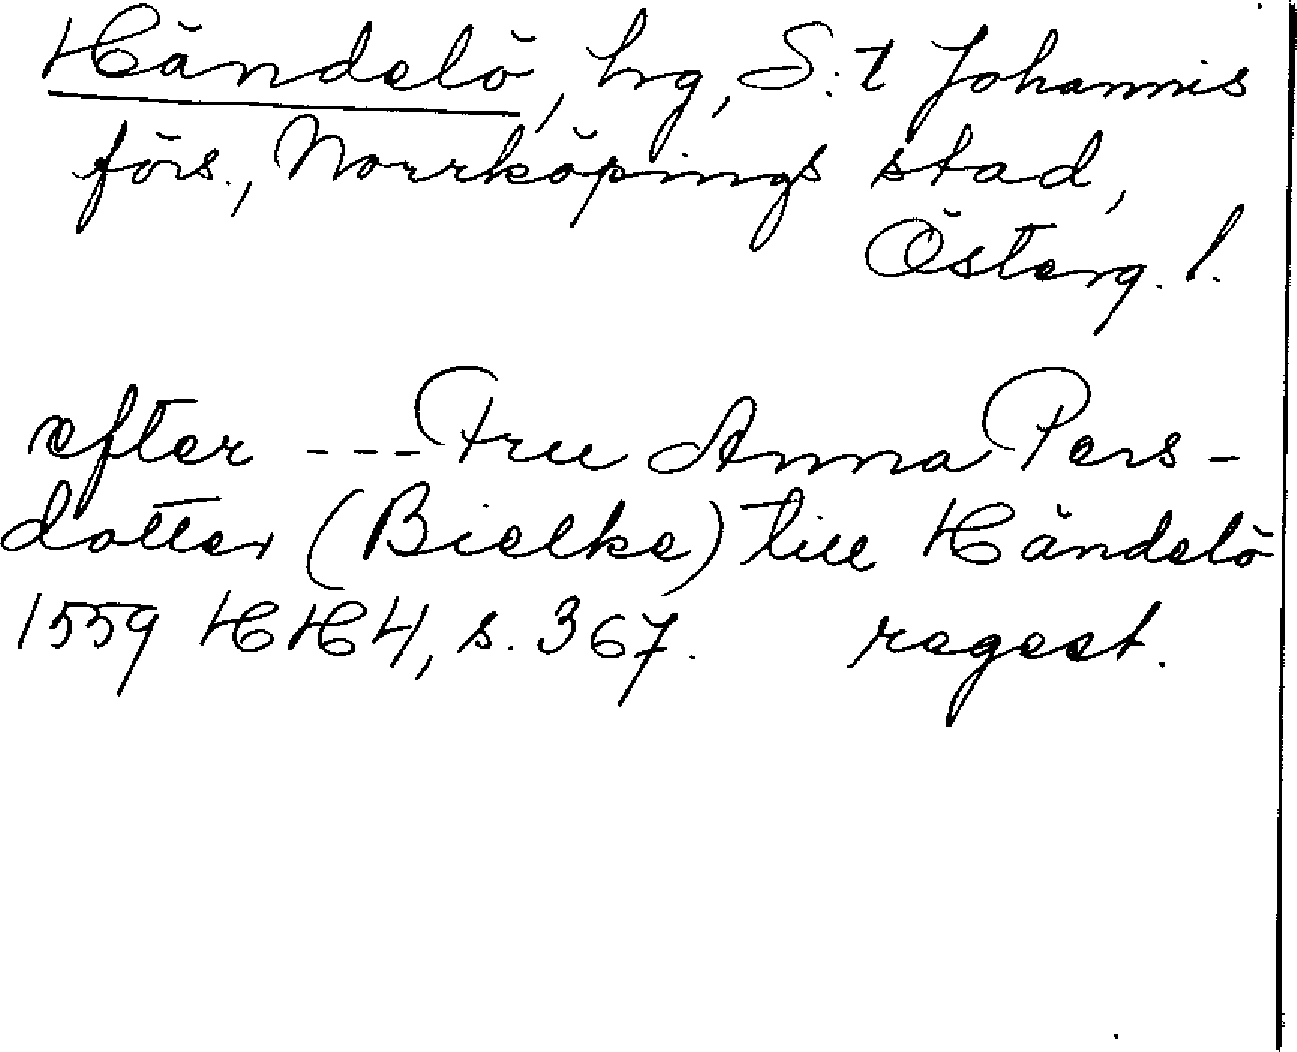 Händelö, hg, S:t Johannis
förs., Norrköpings stad,
Österg. l.
efter --- Fru Anna Pers-
dotter (Bielke) till Händelö
1559 HH4, s. 367. regest.